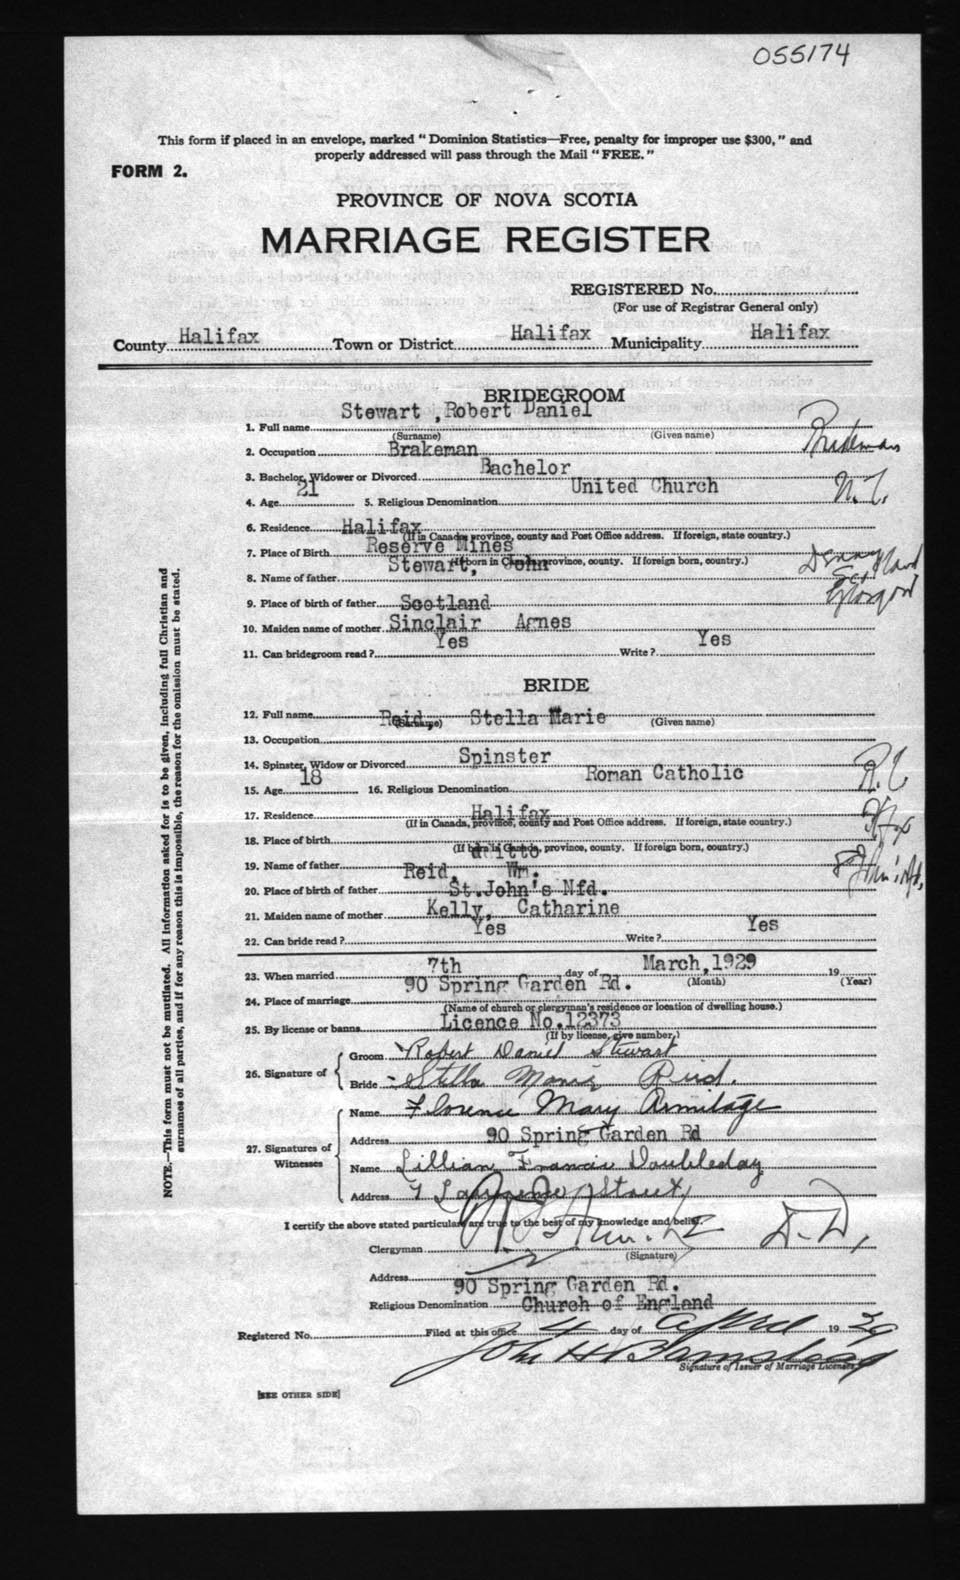 055174
This form if placed in an envelope, marked "Dominion Statistics—Free, penalty for improper use $300," and
properly addressed will pass through the Mail "FREE."
FORM 2.
PROVINCE OF NOVA SCOTIA
MARRIAGE REGISTER
REGISTERED No.
(For use of Registrar General only)
County Halifax Town or District Halifax Municipality Halifax
BRIDEGROOM
1. Full name Stewart ,Robert Daniel
(Surname) (Given name)
2. Occupation Brakeman
3. Bachelor, Widower or Divorced Bachelor
4. Age 21 5. Religious Denomination United Church
6. Residence Halifax
(If in Canada, province, county and Post Office address. If foreign, state country.)
7. Place of Birth Reserve Mines
(If born in Canada, province, county. If foreign born, county.)
8. Name of father Stewart, John
9. Place of birth of father Scotland
10. Maiden name of mother Sinclair Agnes
11. Can bridegroom read? Yes Write? Yes
BRIDE
12. Full name Reid, Stella Marie
(Surname) (Given name)
13. Occupation
14. Spinster, Widow or Divorced Spinster
15. Age 18 16. Religious Denomination Roman Catholic
R.C
17. Residence Halifax
(If in Canada, province, county and Post Office address. If foreign, state country.)
Hfx
18. Place of birth ditto
(If born in Canada, province, county. If foreign born, county.)
19. Name of father Reid, Wm.
20. Place of birth of father St.John's Nfd.
21. Maiden name of mother Kelly, Catharine
22. Can bride read? Yes Write? Yes
23. When married 7th day of March,1929 19
(Month) (Year)
24. Place of marriage 90 Spring Garden Rd.
(Name of church or clergyman's residence or location of dwelling house.)
25. By license or banns Licence No.12373
(If by license, give number.)
26. Signature of
Groom Robert Daniel Stewart
Bride Stella Marie Reid.
27. Signatures of Witnesses
Name Florence Mary Armitage
Address 90 Spring Garden Rd
Name Lillian Francis Doubleday
Address 7 Street
I certify the above stated particulars are true to the best of my knowledge and belief.
Clergyman D.D,
(Signature)
Address 90 Spring Garden Rd.
Religious Denomination Church of England
Registered No. Filed at this office 4 day of April 19 29
John H Barnstead
Signature of Issuer of Marriage Licenses
[SEE OTHER SIDE]
NOTE.—This form must not be mutilated. All information asked for is to be given, including full Christian and
surnames of all parties, and if for any reason this is impossible, the reason for the omission must be stated.